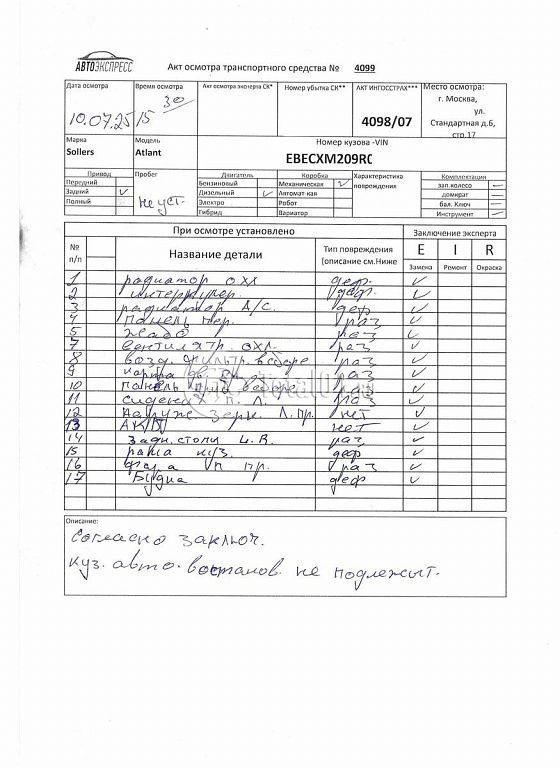 АВТОЭКСПРЕСС
Акт осмотра транспортного средства № 4099
Дата осмотра Время осмотра Акт осмотра эксперта СК* Номер убытка СК** АКТ ИНГОССТРАХ*** Место осмотра:
10.07.25 15 30 4098/07 г. Москва,
ул.
Стандартная д.6,
стр.17
Марка Модель Номер кузова -VIN
Sollers Atlant EBECXM209R
Привод Пробег Двигатель Коробка Характеристика повреждения Комплектация
Передний не уст. Бензиновый Механическая зап.колесо
Задний Дизельный Автомат-кая домкрат
Полный Электро Робот бал. Ключ
Гибрид Вариатор Инструмент
При осмотре установлено Заключение эксперта
№ п/п Название детали Тип повреждения (описание см.Ниже E I R
Замена Ремонт Окраска
1 радиатор охл деф.
2 интеркулер. деф.
3 радиатор A/C. деф
4 панель пер. раз
5 раз
7 вентилятр. охл. раз
8 возд. фильтр. в сборе раз
9 раз
10 панель приб в сборе раз
11 сиденья п. Л. раз
12 наруж. зерк. Л. пр. нет
13 АКП нет
14 задн. стопы L. R. раз
15 рама куз. деф
16 фара п пр. раз
17 Будка деф
Описание:
согласно заключ.
куз. авто. востанов. не подлежыт.